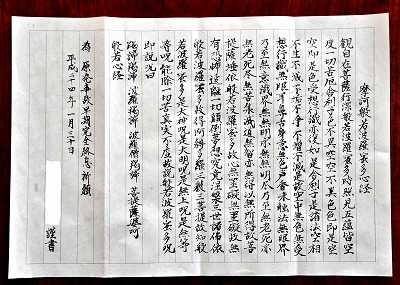 摩訶般若波羅蜜多心経
観自在菩薩行深般若波羅蜜多時照見五蘊皆空
度一切苦厄舎利子色不異空空不異色色即是空
空即是色受想行識亦復如是舎利子是諸法空相
不生不滅不垢不浄不増不減是故空中無色無受
想行識無眼耳鼻舌身意無色声香味触法無眼界
乃至無意識界無無明亦無無明尽乃至無老死亦
無老死尽無苦集滅道無智亦無得以無所得故菩
提薩埵依般若波羅蜜多故心無罣礙無罣礙故無
有恐怖遠離一切顛倒夢想究竟涅槃三世諸仏依
般若波羅蜜多故得阿耨多羅三藐三菩提故知般
若波羅蜜多是大神呪是大明呪是無上呪是無等
等呪能除一切苦真実不虚故説般若波羅蜜多呪
即説呪曰
羯諦羯諦 波羅羯諦 波羅僧羯諦 菩提薩婆訶
般若心経
為 原発事故早期完全終息 祈願
平成二十四年 一月三十日
謹書